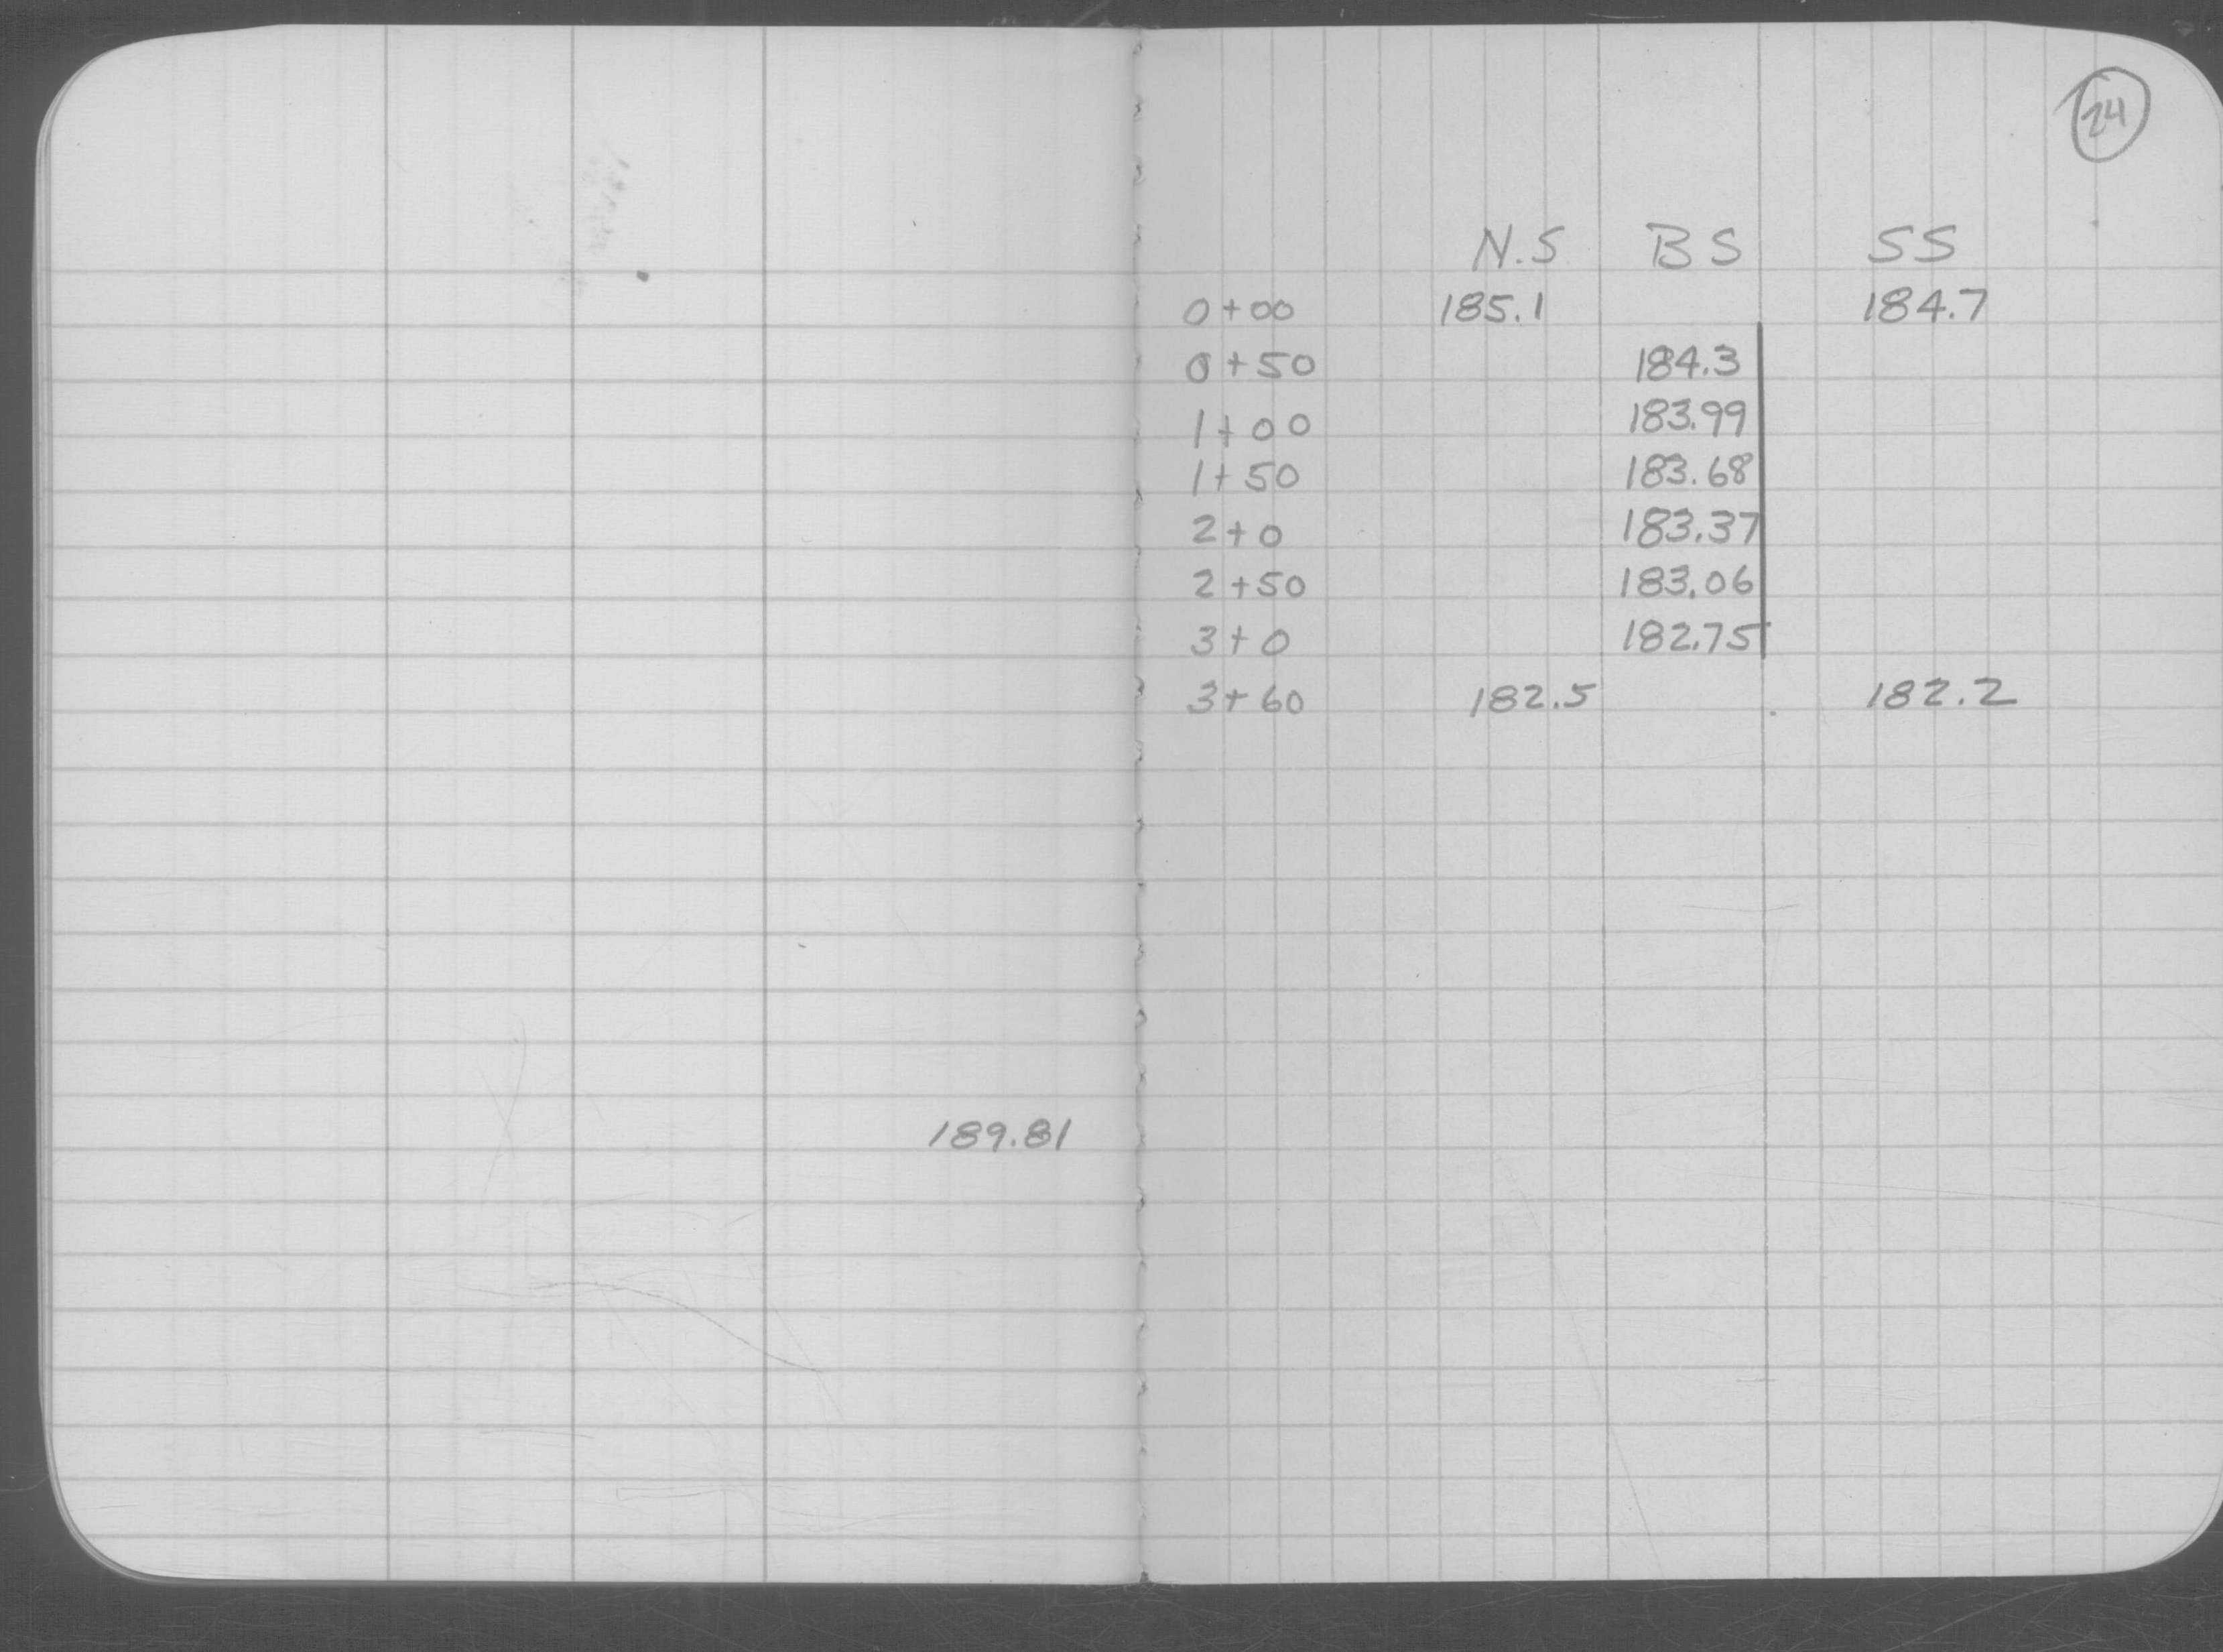 24
N.S BS SS
0+00 185.1 184.7
0+50 184.3
1+00 183.99
1+50 183.68
2+0 183.37
2+50 183.06
3+0 182.75
3+60 182.5 182.2
189.81